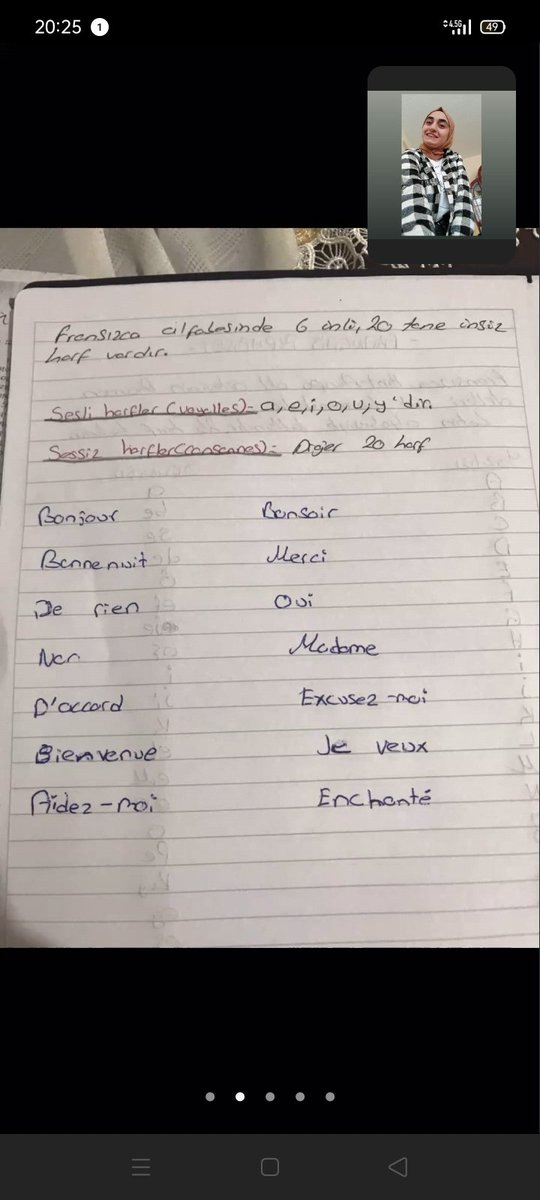 20:25 1 4.5G 49
Fransızca alfabesinde 6 ünlü, 20 tane ünsüz
harf vardır.
Sesli harfler (voyelles)= a, e, i, o, u, y'dir.
Sessiz harfler (consonnes)= Diğer 20 harf
Bonjour Bonsoir
Bonne nuit Merci
De rien Oui
Non Madame
D'accord Excusez-moi
Bienvenué Je veux
Aidez-moi Enchanté